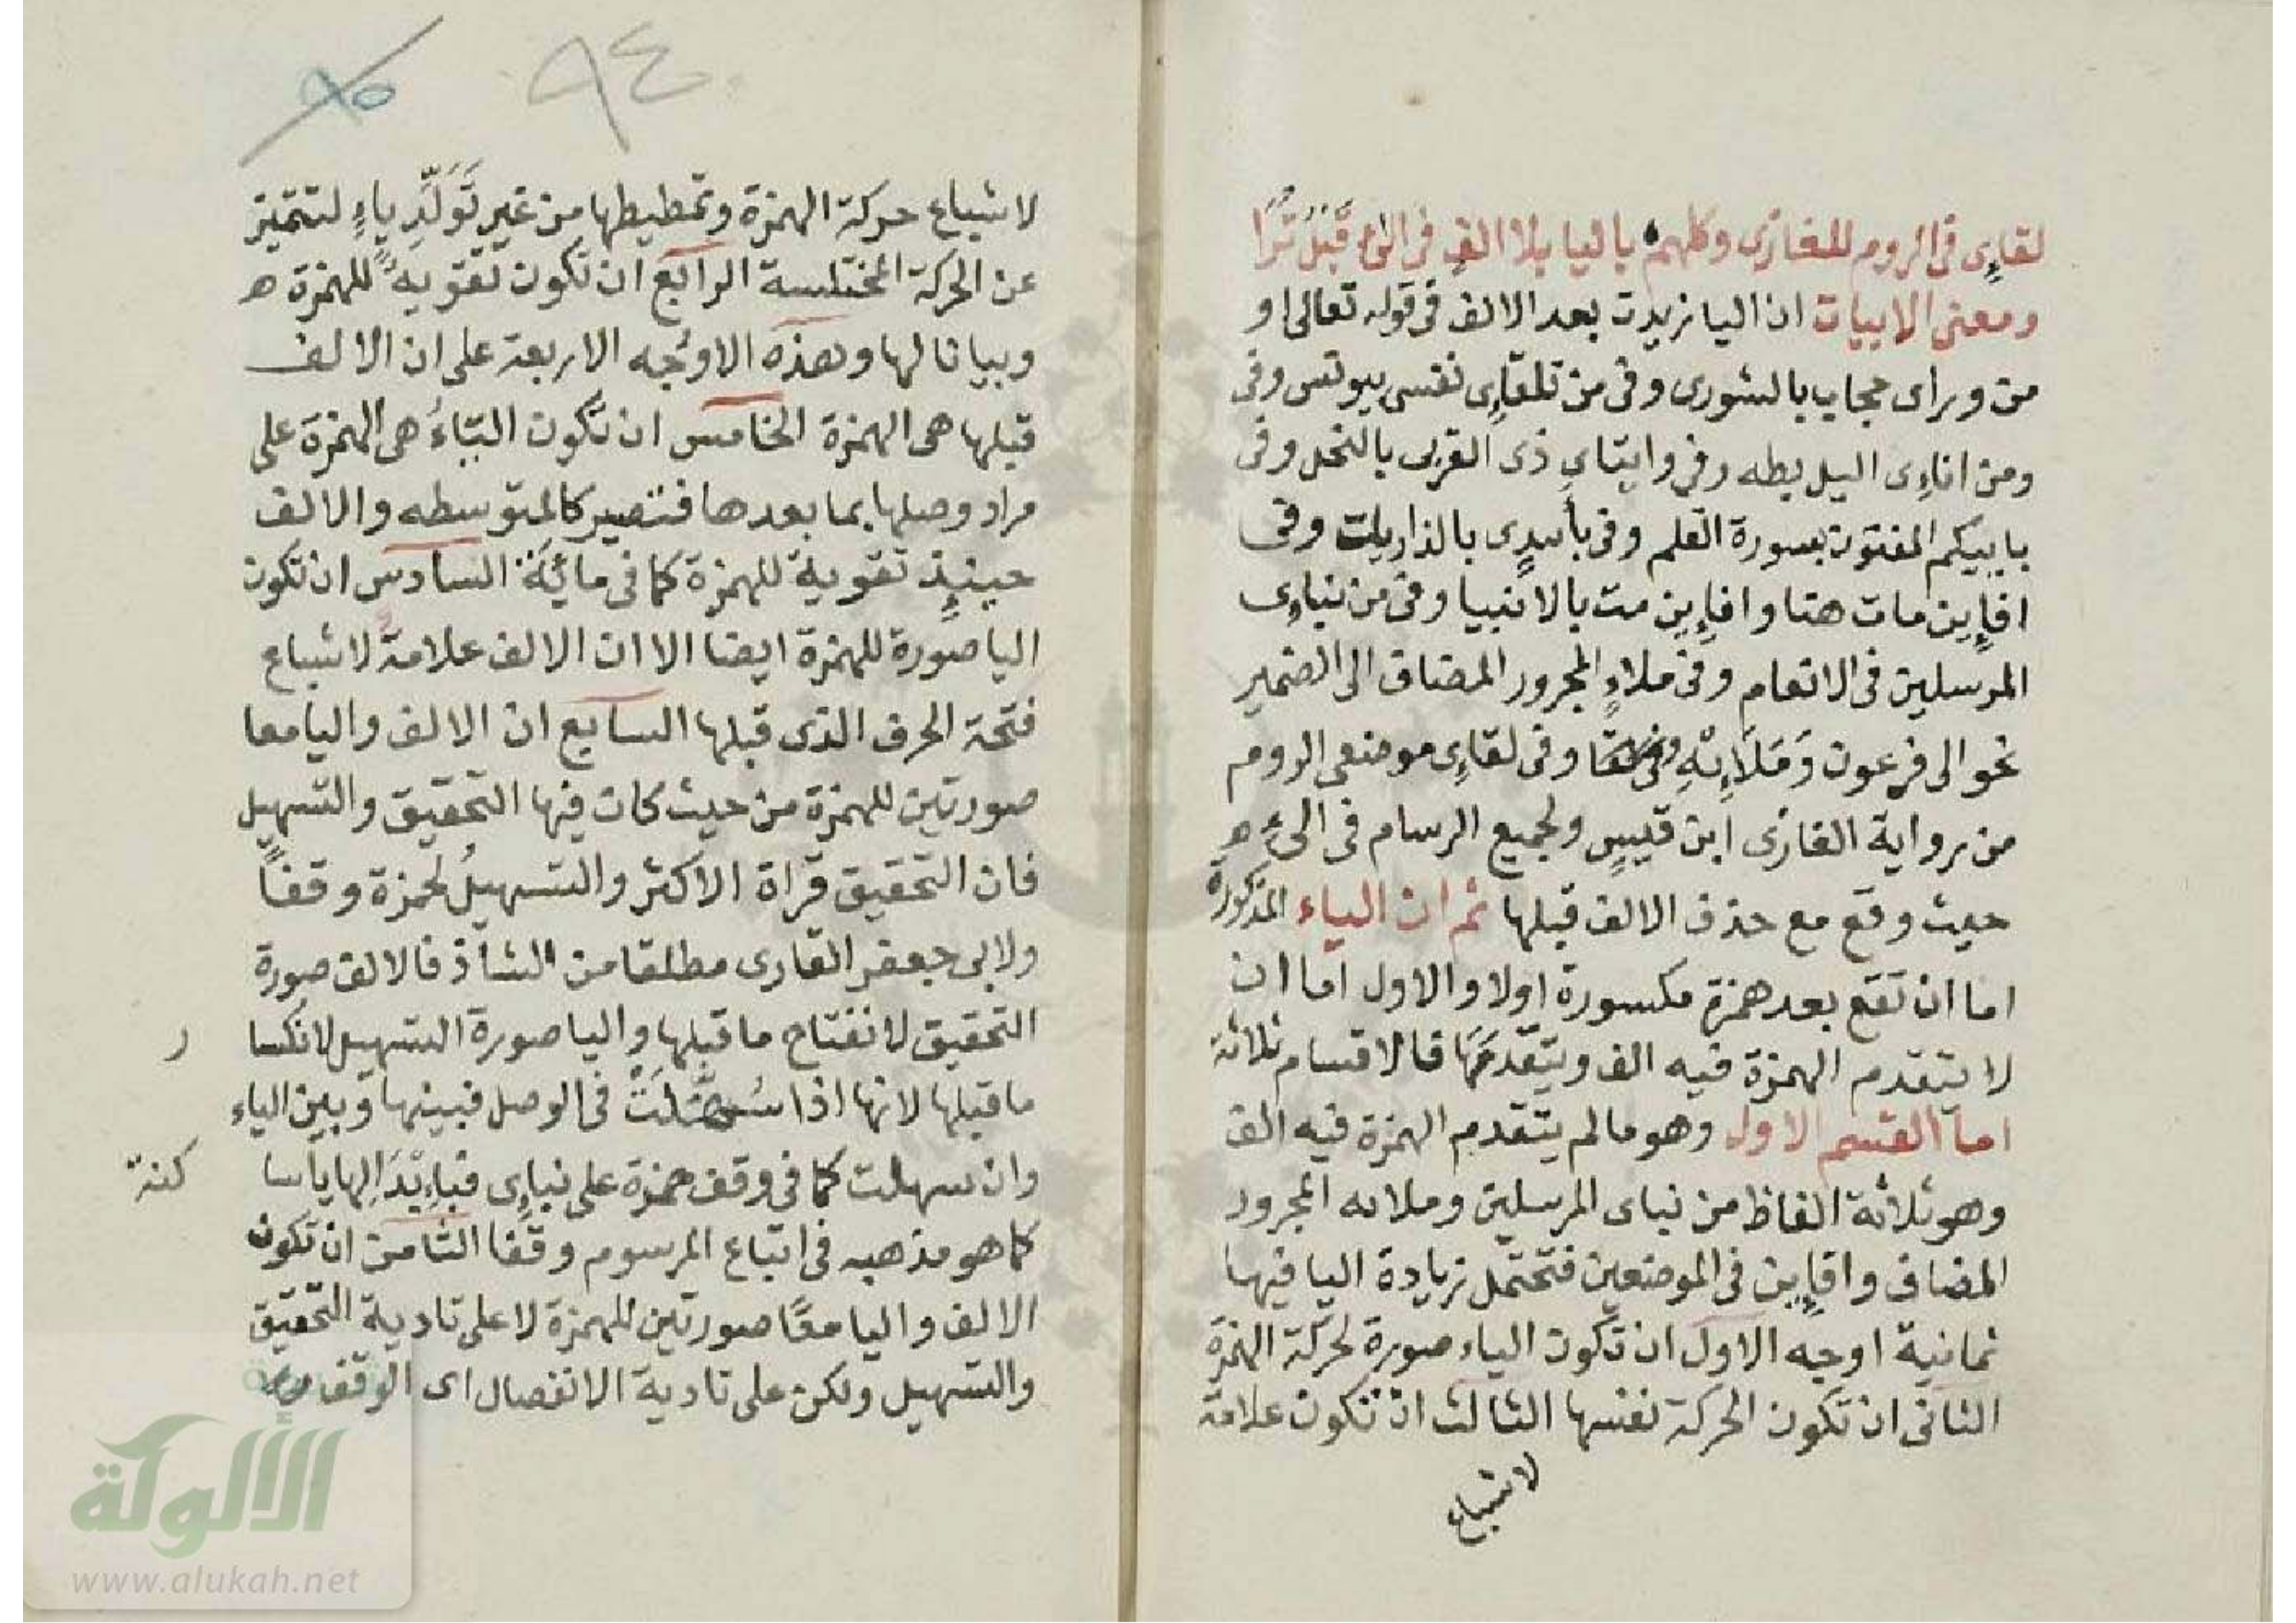 لقاءٍى فى الروم للغازى وكلهم باليا بلا الف فى الىء قبل ترا
ومعنى الابيات ان اليا زيدت بعد الالف فى قوله تعالى او
من وراى حجاب بالشورى وفى من تلقاءى نفسى بيونس وفى
ومن اناءى اليل بطه وفى وايتاى ذى القربى بالنحل وفى
باييكم المفتون بسورة القلم وفى بأييدٍ بالذاريات وفى
افإين مات هنا وافإين مت بالانبيا وفى من نباءى
المرسلين فى الانعام وفى ملاءٍ المجرور المضاف الى الضمير
نحو الى فرعون وَمَلَاءِيْهِ وفى لقاءى موضعى الروم
من رواية الغازى ابن قيسٍ ولجميع الرسام فى الىء
حيث وقع مع حذف الالف قبلها ثم ان الياء المذكورة
اما ان تقع بعد همزة مكسورة اولا والاول اما ان
لا يتقدم الهمزة فيه الف ويتقدمها فالاقسام ثلاثة
اما القسم الاول وهو ما لم يتقدم الهمزة فيه الف
وهو ثلاثة الفاظ من نباى المرسلين وملائه المجرور
المضاف وافإين فى الموضعين فتحتمل زيادة اليا فيها
ثمانية اوجه الاول ان تكون الياء صورة لحركة الهمزة
الثانى ان تكون الحركة نفسها الثالث ان تكون علامة
لاشباع
٩٤
٩٥
لاشباع حركة الهمزة وتمطيطها من غير تَوَلُّدِ ياءٍ لتتميز
عن الحركة المختلسة الرابع ان تكون تقويةً للهمزة ه
وبيانا لها وهذه الاوجه الاربعة على ان الالف
قبلها هى الهمزة الخامس ان تكون الياءُ هى الهمزة على
مراد وصلها بما بعدها فتصير كالمتوسطه والالف
حينيذٍ تقوية للهمزة كما فى مائة السادس ان تكون
اليا صورة للهمزة ايضا الا ان الالف علامةٌ لاشباع
فتحة الحرف الذى قبلها السابع ان الالف واليا معا
صورتين للهمزة من حيث كان فيها التحقيق والتسهيل
فان التحقيق قراة الاكثر والتسهيلُ لحمزة وقفاً
ولابى جعفر القارى مطلقا من الشاذ فالالف صورة
التحقيق لانفتاح ما قبلها واليا صورة التسهيل لانكسا
ر
ما قبلها لانها اذا سُهِّلَتْ فى الوصل فبينها وبين الياء
وان سهلت كما فى وقف حمزة على نباءى فباءِبْدَالِها يا سا
كنة
كما هو مذهبه فى اتباع المرسوم وقفا الثامن ان تكون
الالف واليا معًا صورتين للهمزة لا على تادية التحقيق
والتسهيل ولكن على تادية الانفصال اى الوقف
الألوكة
www.alukah.net